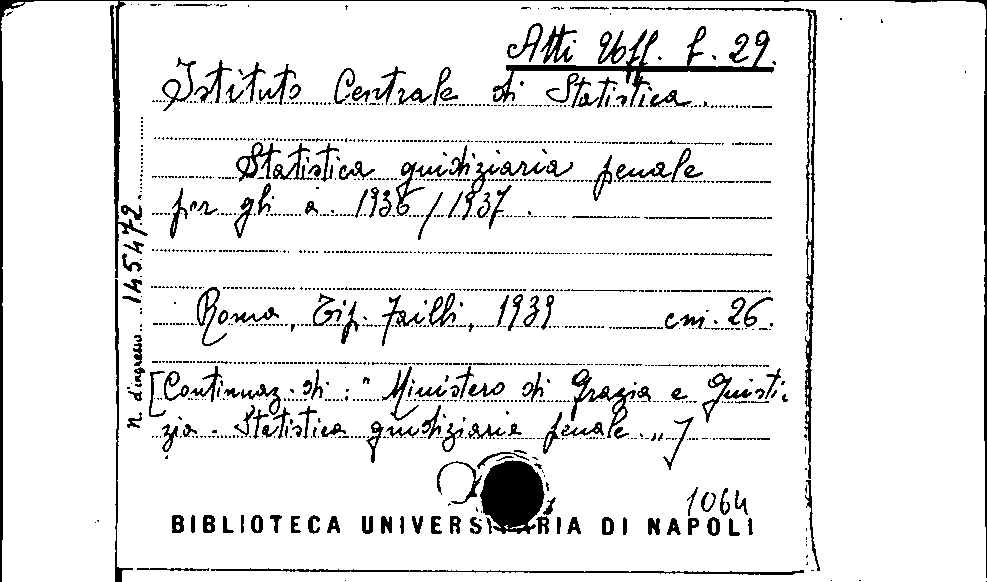 Atti Uff. f. 29.
Istituto Centrale di Statistica.
Statistica giudiziaria penale
per gli a. 1936/1937.
Roma, Tip. Failli, 1939 cm. 26.
[Continuaz. di: "Ministero di Grazia e Giusti-
zia - Statistica giudiziaria penale."]
n. d'ingresso 145472
1064
BIBLIOTECA UNIVERSITARIA DI NAPOLI